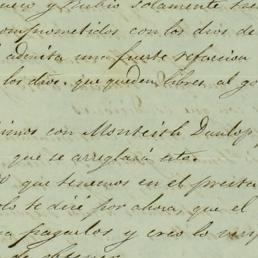 nuevo y Rubio solamente tres
comprometidos con los dios de
admita una fuerte refaccion
los dios. que queden libres al go
imos con Monteith Dunlop,
que se arreglará esto.
que tenemos en el presta
lo te diré por ahora, que el
pagarlos y creo lo